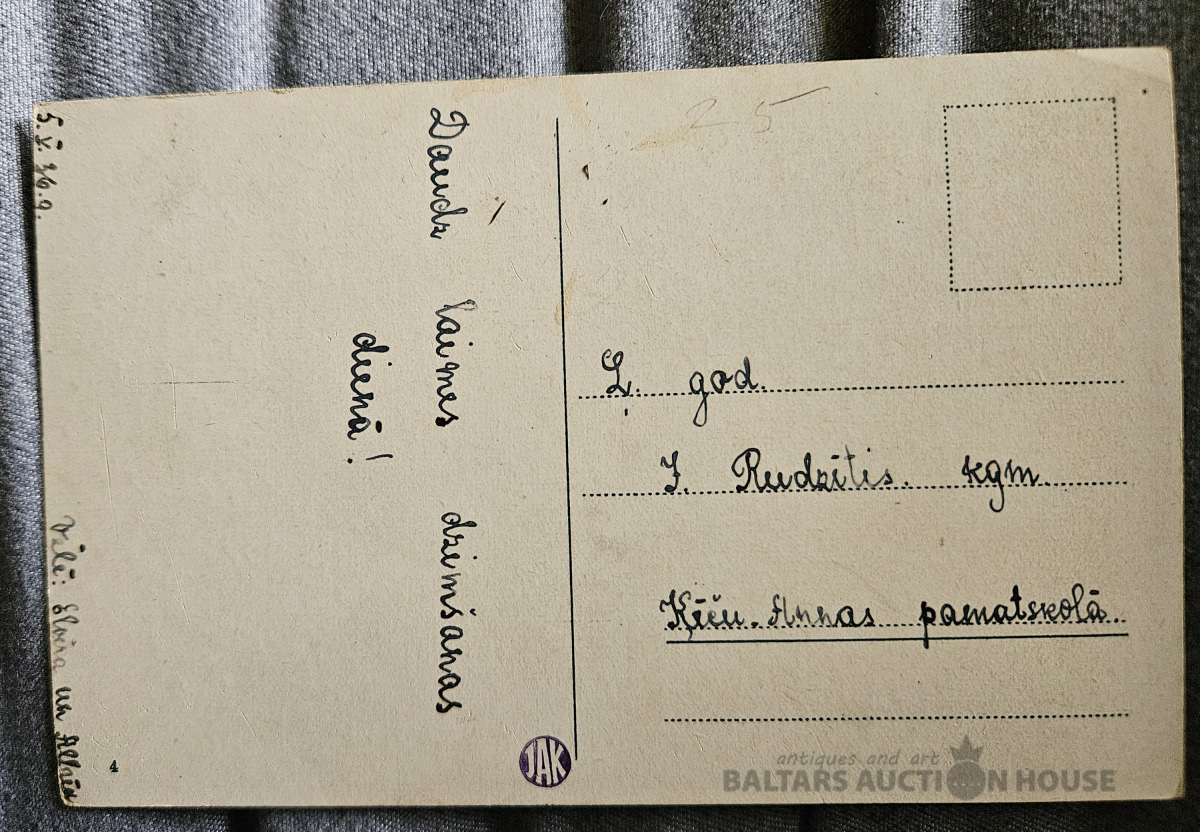 25
Daudz laimes dzimšanas
dienā!
5. V. 36. g.
Vēlē: Elvira un
Ļ. god.
J. Rudzītis. kgm.
Ķieču-Annas pamatskolā.
JAK
4
antiques and art
BALTARS AUCTION HOUSE